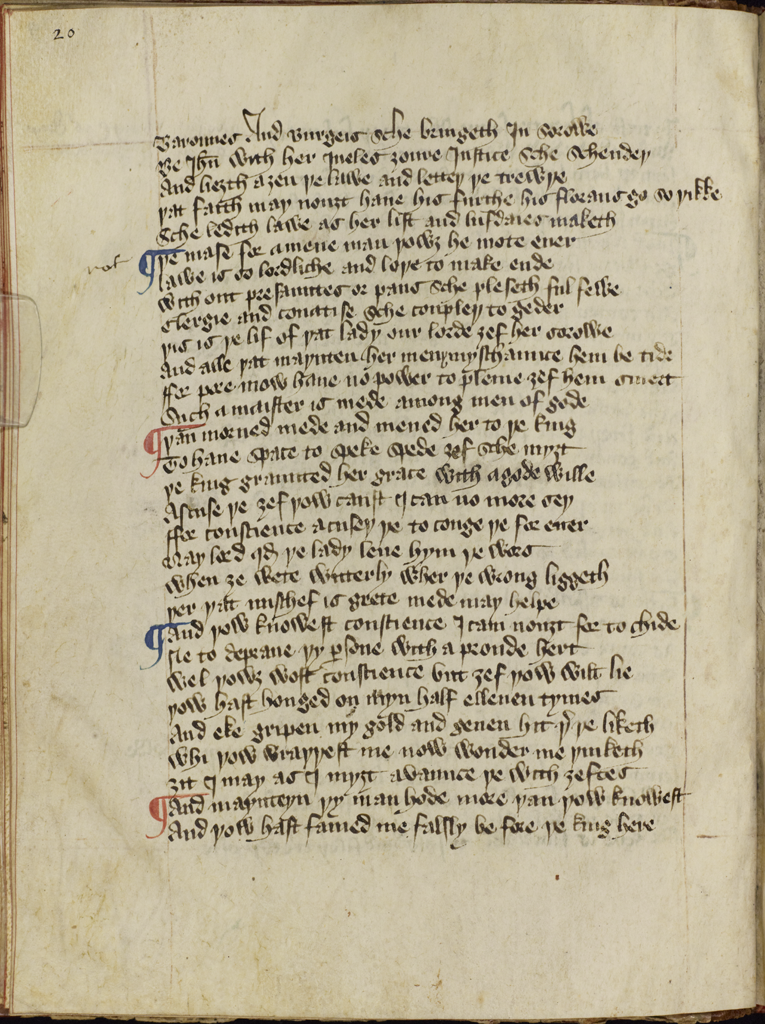 20
Baronnes And Burgeis sche bringeth In sorowe
Be Jhu with her Jueles ȝoure Justice sche schendeþ
And liȝth aȝen þe lawe and letteþ þe trewþe
Þat faith may nouȝt haue his furthe his floreans go so þikke
Sche ledith lawe as her list and lufdaies maketh
Þe mase for a mene man þowȝ he mote euer
Lawe is so lordliche and loþe to make ende
With out presauntes or pans sche pleseth ful fewe
Clergie and couatise sche coupleþ to geder
Þis is þe lif of þat lady our lorde ȝef her sorowe
And alle þat maynten her men myschaunce hem be tide
ffor pore mow haue no power to pleine ȝef hem smert
Such a maister is mede among men of gode
Þan morned mede and mened her to þe king
To haue space to speke spede ȝef sche myȝt
Þe king graunted her grace with a gode wille
Ascuse þe ȝef þow canst I can no more sey
ffor conscience acuseþ þe to conge þe for euer
Nay lord qd þe lady leue hym þe wers
When ȝe wete witterly wher þe wrong liggeth
Þer þat mischef is grete mede may helpe
And þow knowest conscience I cam nouȝt for to chide
Ne to depraue þy persone with a proude hert
Wel þowȝ wost conscience but ȝef þow wilt lie
Þow hast honged on myn half elleuen tymes
And eke gripen my gold and geuen hit þer þe liketh
Whi þow wrappest me now wonder me þinketh
Ȝit I may as I myȝt auaunce þe with ȝeftes
And maynteyn þy manhode more þan þow knowest
And þow hast famed me falsly be fore þe king here